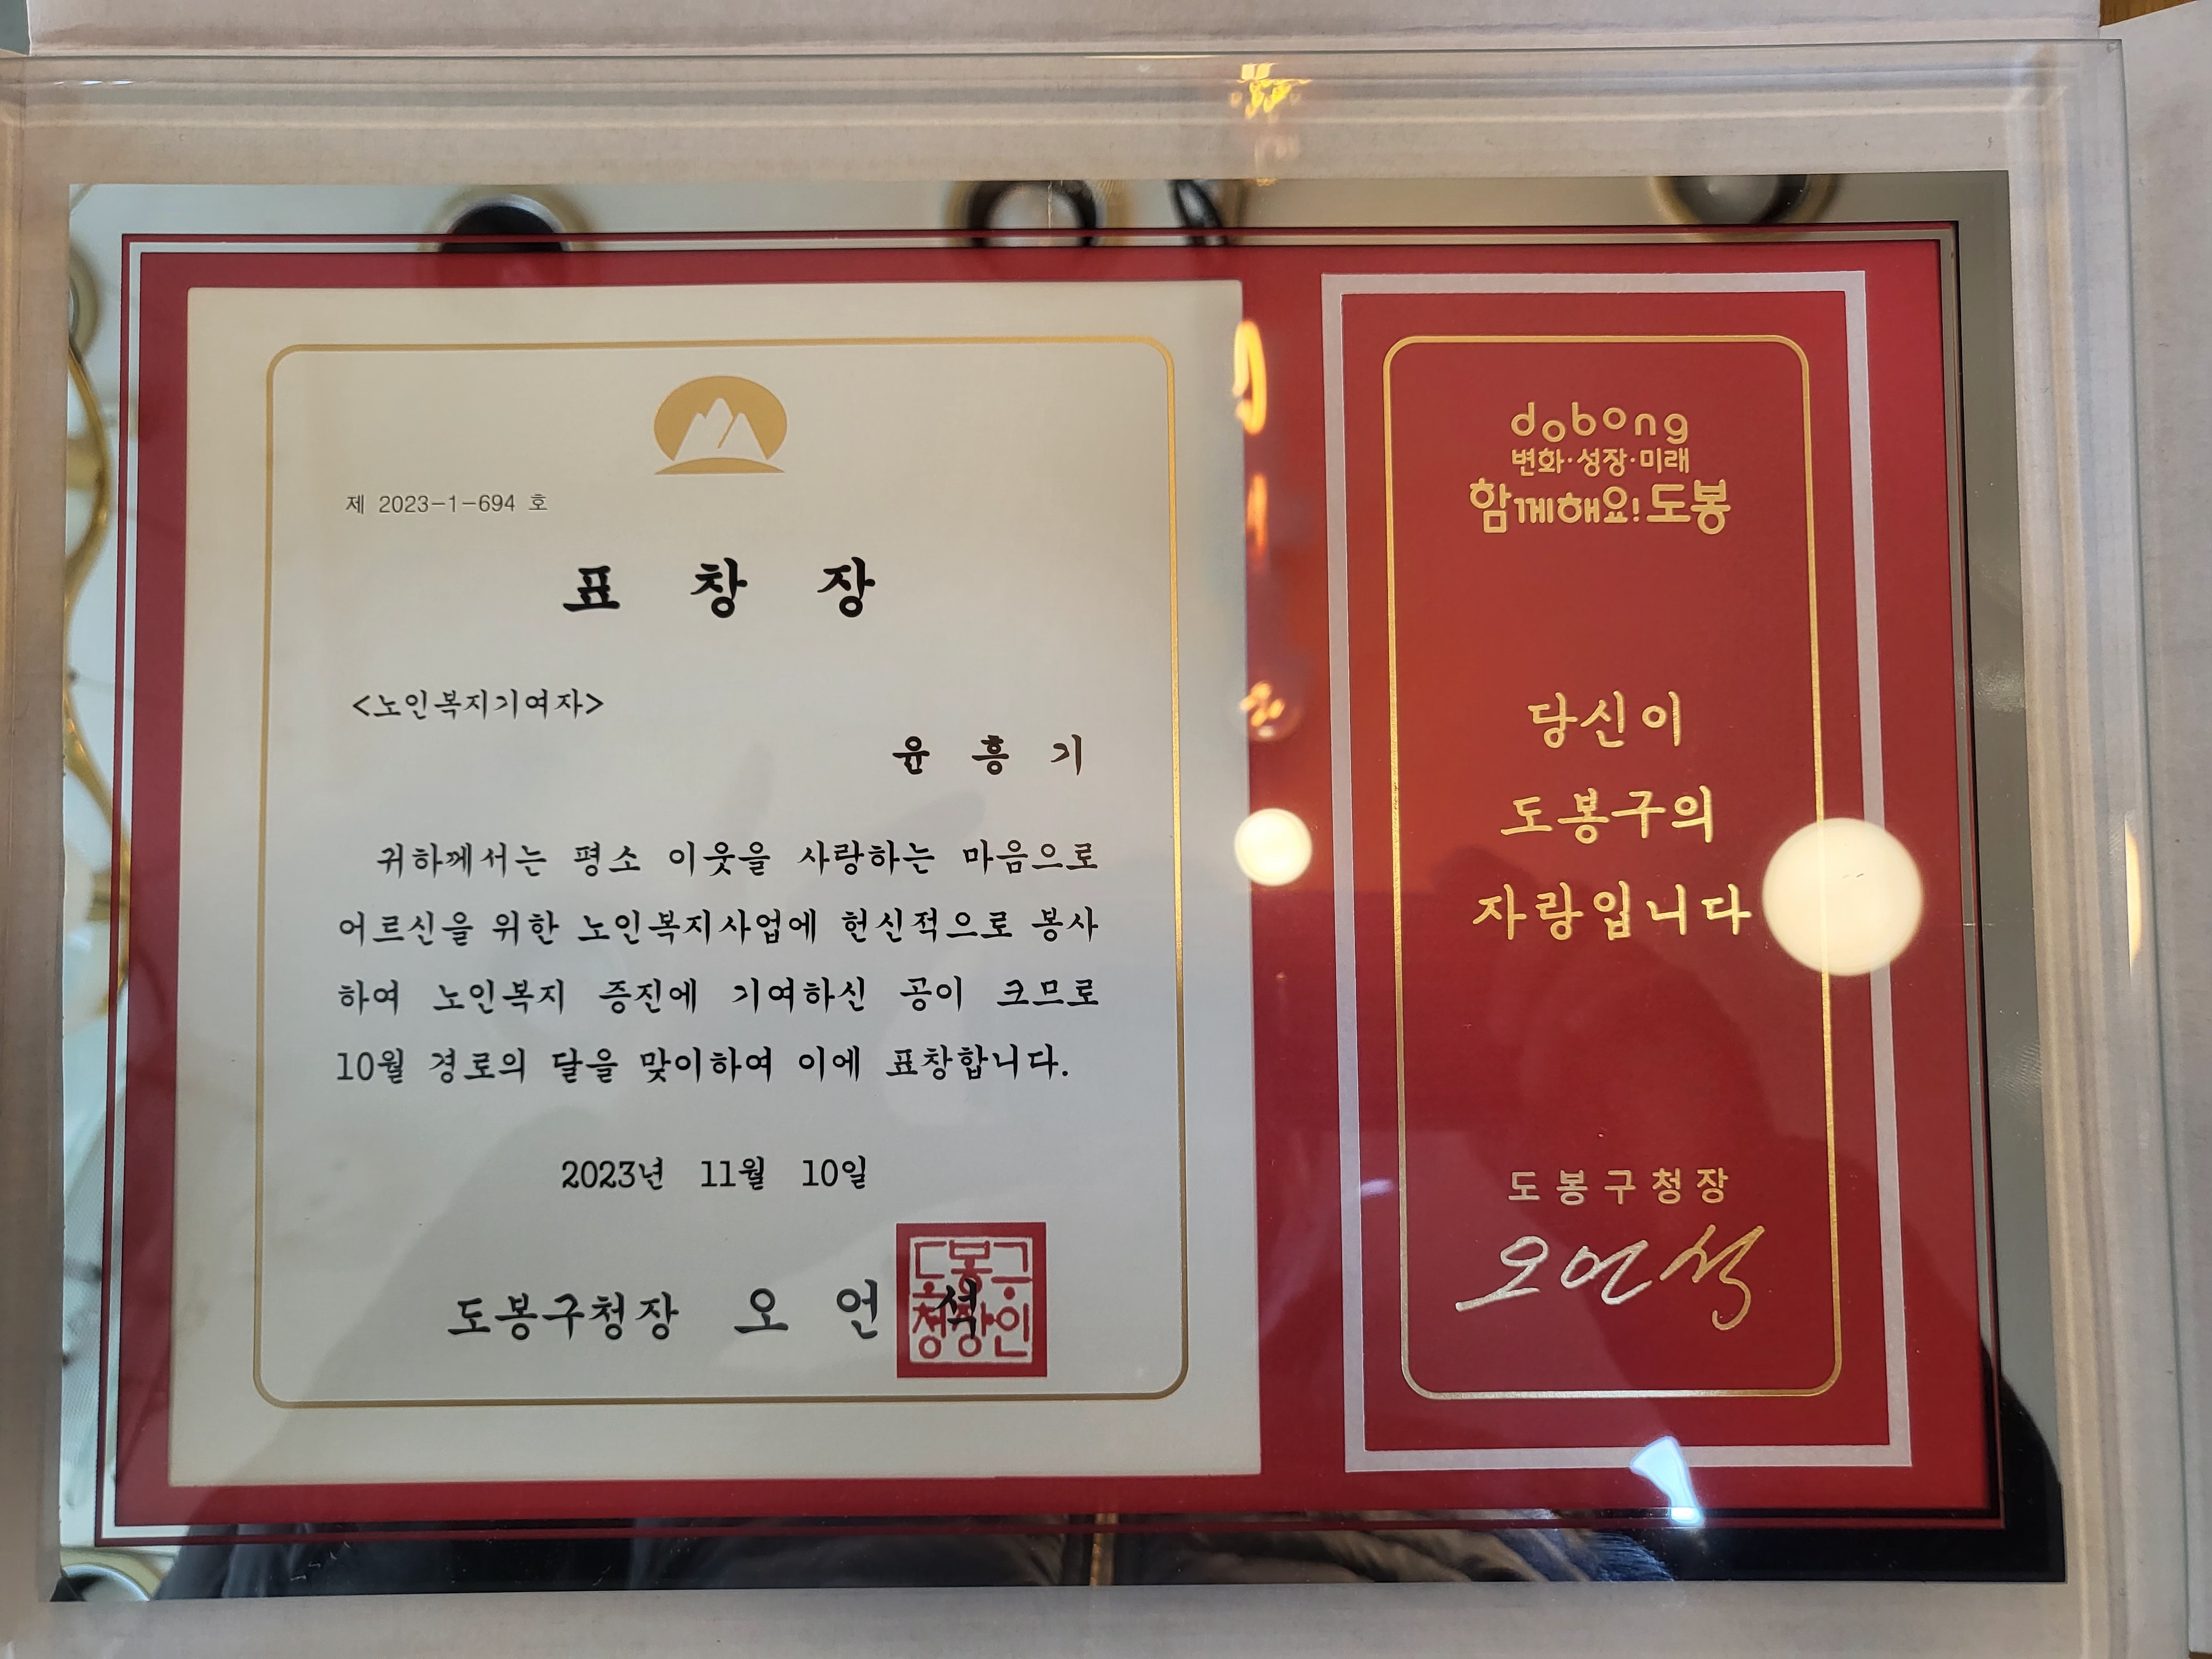 제 2023-1-694 호
표 창 장
<노인복지기여자>
윤 흥 기
귀하께서는 평소 이웃을 사랑하는 마음으로
어르신을 위한 노인복지사업에 헌신적으로 봉사
하여 노인복지 증진에 기여하신 공이 크므로
10월 경로의 달을 맞이하여 이에 표창합니다.
2023년 11월 10일
도봉구청장 오 언 석
도봉구
청장인
dobong
변화·성장·미래
함께해요! 도봉
당신이
도봉구의
자랑입니다
도봉구청장
오언석